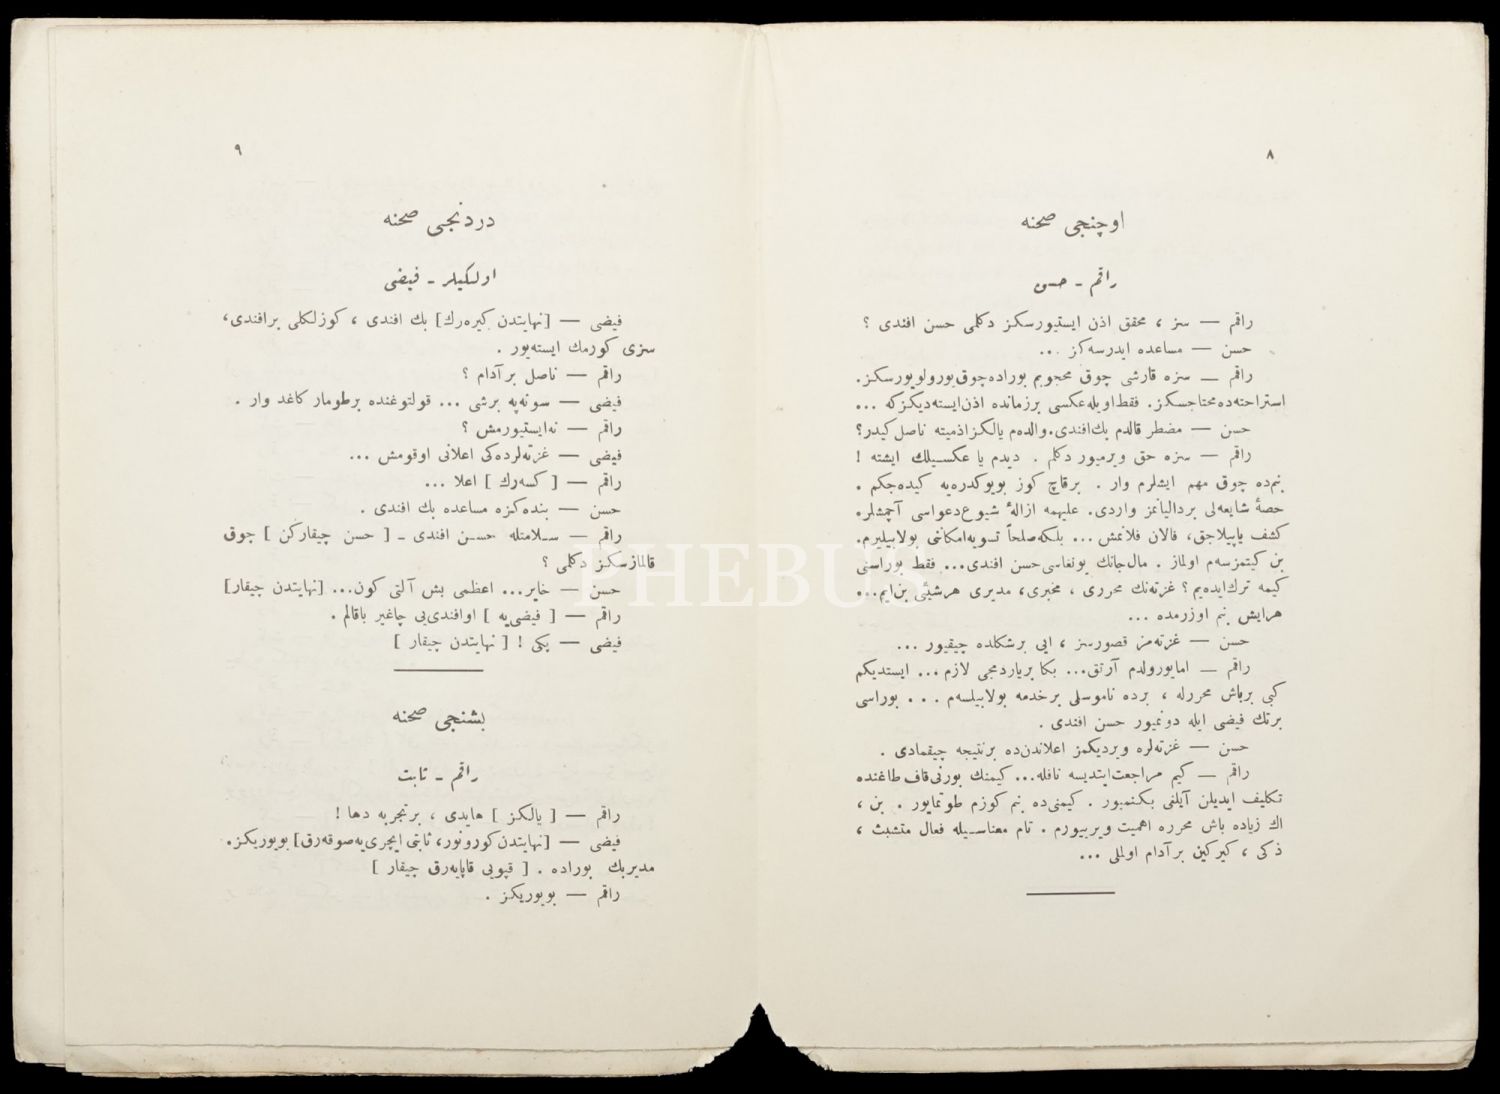 ٨
اوچنجی صحنه
راقم ـ حسن
راقم — سز ، محقق اذن ایستیورسکز دکلمی حسن افندی ؟
حسن — مساعده ایدرسه‌کز ...
راقم — سزه قارشی چوق محجوبم بوراده چوق یورولویورسکز.
استراحته‌ده محتاجسکز. فقط اویله عکسی بر زمانده اذن ایسته‌دیکزکه ...
حسن — مضطر قالدم بك افندی. والده‌م یالکز ازمیته ناصل کیدر؟
راقم — سزه حق ویرمیور دکلم . دیدم یا عکسیلك ایشته !
بنم‌ده چوق مهم ایشلرم وار . برقاچ کوز بویوکدره‌یه کیده‌جکم .
حصهٔ شایعه‌لی بردالیانمز واردی. علیهمه ازالهٔ شیوع دعواسی آچمشلر.
کشف یاپیلاجق، فالان فلانمش ... بلکه صلحاً تسویه امکاننی بولابیلیرم.
بن کیتمزسه‌م اولماز . مال جانك یونغاسی حسن افندی... فقط بوراسنی
کیمه ترك ایده‌یم؟ غزته‌نك محرری ، مخبری، مدیری هرشیئی بن‌ایم...
هر ایش بنم اوزرمده ...
حسن — غزته‌مز قصورسز ، ایی برشکلده چیقیور ...
راقم — اما یورولدم آرتق... بکا بر یاردمجی لازم ... ایستدیکم
کبی بر باش محررله ، برده ناموسلی برخدمه بولابیلسه‌م . . . بوراسی
برتك فیضی ایله دونمیور حسن افندی .
حسن — غزته‌لره ویردیکمز اعلاندن‌ده برنتیجه چیقمادی .
راقم — کیم مراجعت ایتدیسه نافله... کیمنك بورنی قاف طاغنده
تکلیف ایدیلن آیلغی بکنمیور . کیمنی‌ده بنم کوزم طوتمایور . بن ،
اك زیاده باش محرره اهمیت ویریورم . تام معناسیله فعال متشبث ،
ذکی ، کیرکین بر آدام اولملی ...
٩
دردنجی صحنه
اولکیلر ـ فیضی
فیضی — [نهایتدن کیره‌رك] بك افندی ، کوزلکلی بر افندی،
سزی کورمك ایسته‌یور .
راقم — ناصل بر آدام ؟
فیضی — سوته‌په برشی ... قولتوغنده برطومار کاغد وار .
راقم — نه ایستیورمش ؟
فیضی — غزته‌لرده‌کی اعلانی اوقومش ...
راقم — [ کسه‌رك ] اعلا ...
حسن — بنده‌کزه مساعده بك افندی .
راقم — سلامتله حسن افندی ـ [ حسن چیقارکن ] چوق
قالمازسکز دکلمی ؟
حسن — خایر... اعظمی بش آلتی کون... [نهایتدن چیقار]
راقم — [ فیضی‌یه ] او افندی‌یی چاغیر باقالم .
فیضی — پکی ! [ نهایتدن چیقار ]
بشنجی صحنه
راقم ـ ثابت
راقم — [ یالکز ] هایدی ، بر تجربه دها !
فیضی — [نهایتدن کورونور، ثابتی ایچری‌یه صوقه‌رق] بویوریکز.
مدیر بك بوراده . [ قپویی قاپایه‌رق چیقار ]
راقم — بویوریکز .
PHEBUS